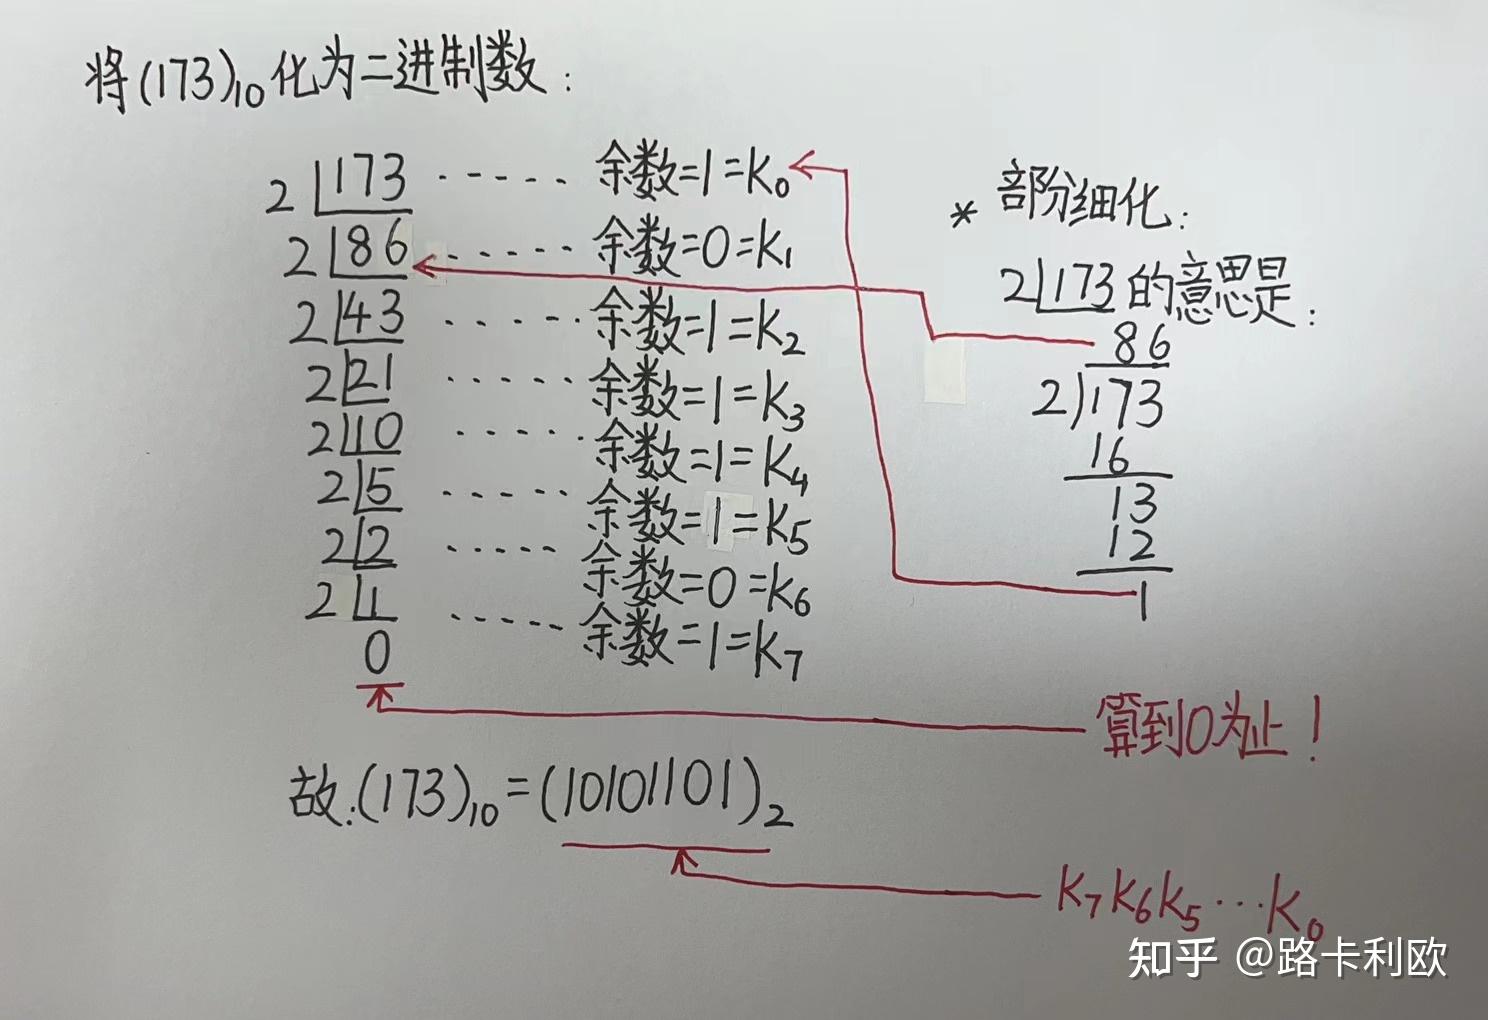 将(173)₁₀化为二进制数:
2|173 ······ 余数=1=K₀
2|86 ······ 余数=0=K₁
2|43 ······ 余数=1=K₂
2|21 ······ 余数=1=K₃
2|10 ······ 余数=1=K₄
2|5 ······ 余数=1=K₅
2|2 ······ 余数=0=K₆
2|1 ······ 余数=1=K₇
0
* 部份细化:
2|173的意思是:
86
2)173
16
13
12
1
算到0为止!
故:(173)₁₀=(10101101)₂
K₇K₆K₅···K₀
知乎 @路卡利欧